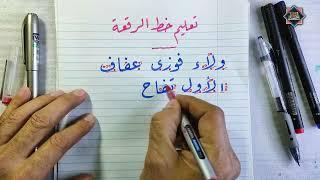 تعليم خط الرقعة
ولاء فوزى عفاف
الأول تفاح